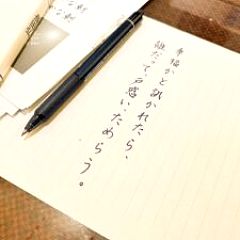 幸福かと訊かれたら、
誰だって、戸惑い、ためらう。